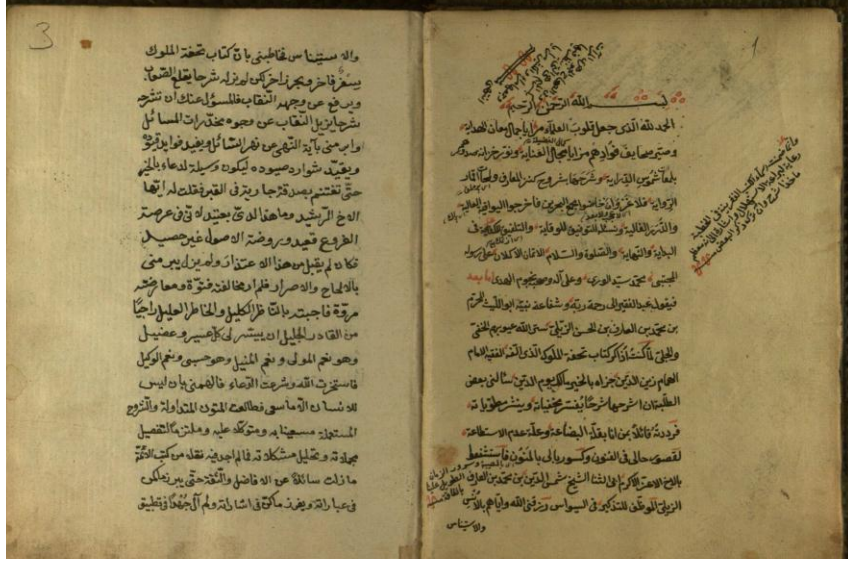 1
بسم الله الرحمن الرحيم
الحمد لله الذي جعل قلوب العلماء مرايا جمال معان للهداية
وصير صحايف فؤادهم مزايا مجال العناية ونور خزانة صدورهم
بلمعات شموس الدراية وشرحها بشروح كنز المعارف ولمحات اقمار
الرواية فلا غرو ان خاضوا مجمع البحرين فاخرجوا اليواقيت الغالية
والدرر الغالية ونسئل التوفيق للوقاية والتلفيق للكفاية في
البداية والنهاية والصلوة والسلام الاتمان الاكملان على رسوله
المجتبى محمد سيد الورى وعلى آله وصحبه نجوم الهدى اما بعد
فيقول عبد الفقير الى رحمة ربه وشفاعة نبيه ابو الليث المحرم
بن محمد بن العارف بن الحسن الزيلي ستر الله عيوبهم الخفي
والجلي لما كنت اذاكر كتاب تحفة الملوك الذي الفه الفقيه الامام
الهمام زين الدين جزاه بالخير مالك يوم الدين سألني بعض
الطلبة ان اشرحها شرحا يفسر مخفياته وينشر مطوياته
فرددته قائلا بمن انا بقلة البضاعة وعلة عدم الاستطاعة
لقصور حالي في الفنون وكسور بالي بالمنون فاستنبط
بالاخ الاعز الاكرم اعني لنا الشيخ شمس الدين بن محمد بن العارف
الزيلي الموظف للتذكير في السيواس ورزقني الله واياهم بالانس
والاستيناس
3
والاستيناس فخاطبني بان كتاب تحفة الملوك
سفر فاخر وبحر زاخر لكن لم يبرز له شرحا يقلع الصعاب
ويرفع عن وجهه النقاب فالمسؤل عنك ان تشرحه
شرحا يزيل النقاب عن وجوه مخدرات المسائل
وابرمني بآية النهي عن نهر السائل ويفيد فوايد قيوده
ويقيد شوارد صيوده ليكون وسيلة لدعاء بالخير
حتى تغتنم بصدقة جارية في القبر فقلت له ايها
الاخ الرشيد وما هذا الذي لاني في عرصة
الفروع قعيد وروضة الاصول غير حصيد
فكان لم يقبل من هذا الاعتذار ولم يزل يبرمني
بالالحاح والاصرار فلم ار مخالفته فتوة ومعارضته
مروة فاجبته بالناظر الكليل والخاطر العليل راجيا
من القادر الجليل ان ييسر لي كل عسير وعضيل
وهو نعم المولى ونعم المنيل وهو حسبي ونعم الوكيل
فاستخرت الله وشرعت الدعاء فالهمني بان ليس
للانسان الا ما سعى فطالعت المتون المتداولة والشروح
المستعملة مستعينا به ومتوكلا عليه وملتزما لتفصيل
مجملاته وتحليل مشكلاته فما لم اجد فيه نقلا من كتب الائمة
ما زلت سائلا عن الافاضل والائمة حتى يبرز ما كمن
في عباراته ويفرز ما كن في اشاراته ولم آل جهدا في تطبيق